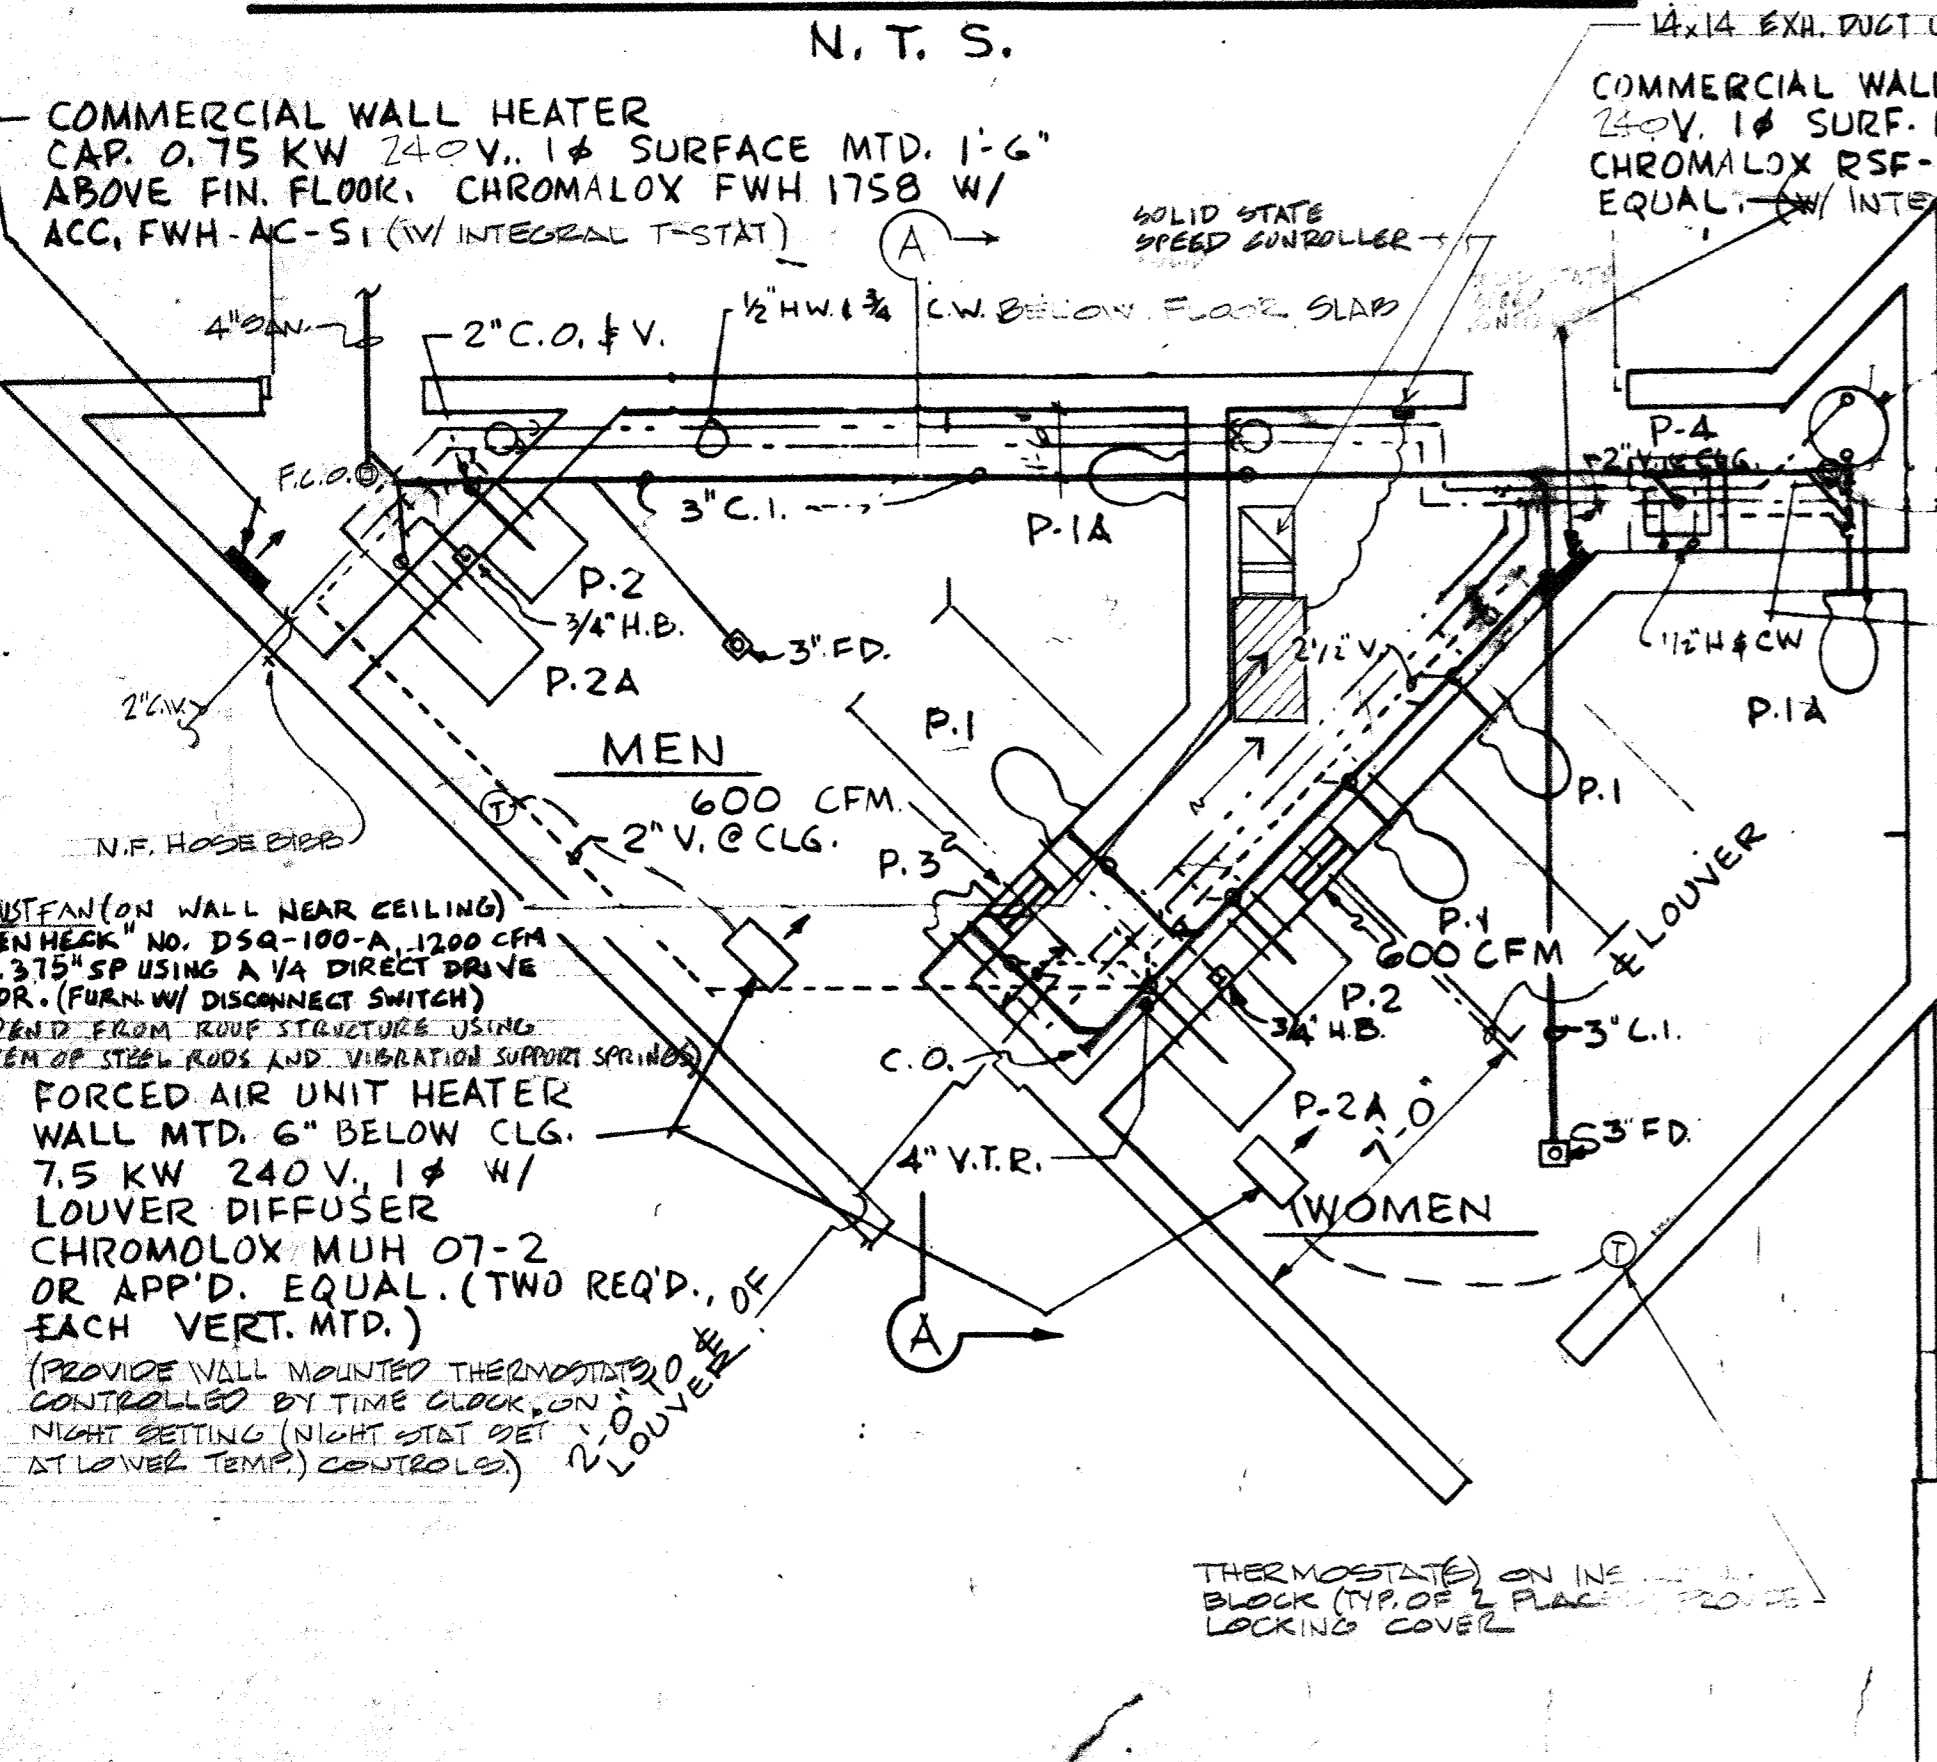 N. T. S.
14x14 EXH. DUCT
COMMERCIAL WALL HEATER
CAP. 0.75 KW 240V.. 1ø SURFACE MTD. 1'-6"
ABOVE FIN. FLOOR. CHROMALOX FWH 1758 W/
ACC, FWH-AC-S1 (W/ INTEGRAL T-STAT)
COMMERCIAL WALL
240V. 1ø SURF.
CHROMALOX RSF-
EQUAL. (W/ INTE
A
SOLID STATE
SPEED CONROLLER
4" SAN.
2" C.O. & V.
1/2" HW. & 3/4 C.W. BELOW FLOOR SLAB
F.C.O.
3" C.I.
P-1A
P-4
2" V. @ CLG.
P.2
3/4" H.B.
3" FD.
P.2A
2 1/2" V.
1/2" H & CW
P.1A
2" C.W.
P.1
MEN
600 CFM.
2" V. @ CLG.
T
P.1
P.3
N.F. HOSE BIBB
℄ LOUVER
UST FAN (ON WALL NEAR CEILING)
EN HECK" NO. DSQ-100-A, 1200 CFM
.375" SP USING A 1/4 DIRECT DRIVE
OR. (FURN. W/ DISCONNECT SWITCH)
PEND FROM ROOF STRUCTURE USING
TEM OF STEEL RODS AND VIBRATION SUPPORT SPRINGS)
P.1
600 CFM
P.2
3/4" H.B.
3" C.I.
C.O.
FORCED AIR UNIT HEATER
WALL MTD. 6" BELOW CLG.
7.5 KW 240 V., 1ø W/
LOUVER DIFFUSER
CHROMOLOX MUH 07-2
OR APP'D. EQUAL. (TWO REQ'D.,
EACH VERT. MTD.)
(PROVIDE WALL MOUNTED THERMOSTATS
CONTROLLED BY TIME CLOCK, ON
NIGHT SETTING (NIGHT STAT SET
AT LOWER TEMP.) CONTROLS.)
P-2A
7'-0"
3" FD.
4" V.T.R.
WOMEN
T
A
2'-0" TO ℄ OF
LOUVER.
THERMOSTAT(S) ON
BLOCK (TYP. OF 2
LOCKING COVER